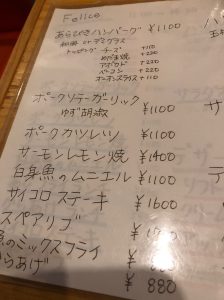 Felice
あらびきハンバーグ ¥1100
和風 or デミグラス
トッピング チーズ +110
めだま焼 +220
アボカド +220
ベーコン +220
オニオンスライス +110
ポークソテーガーリック
ゆず胡椒 ¥1100
ポークカツレツ ¥1100
サーモンレモン焼 ¥1400
白身魚のムニエル ¥1100
サイコロステーキ ¥1600
スペアリブ
魚のミックスフライ ¥
からあげ ¥ 880
¥ 880